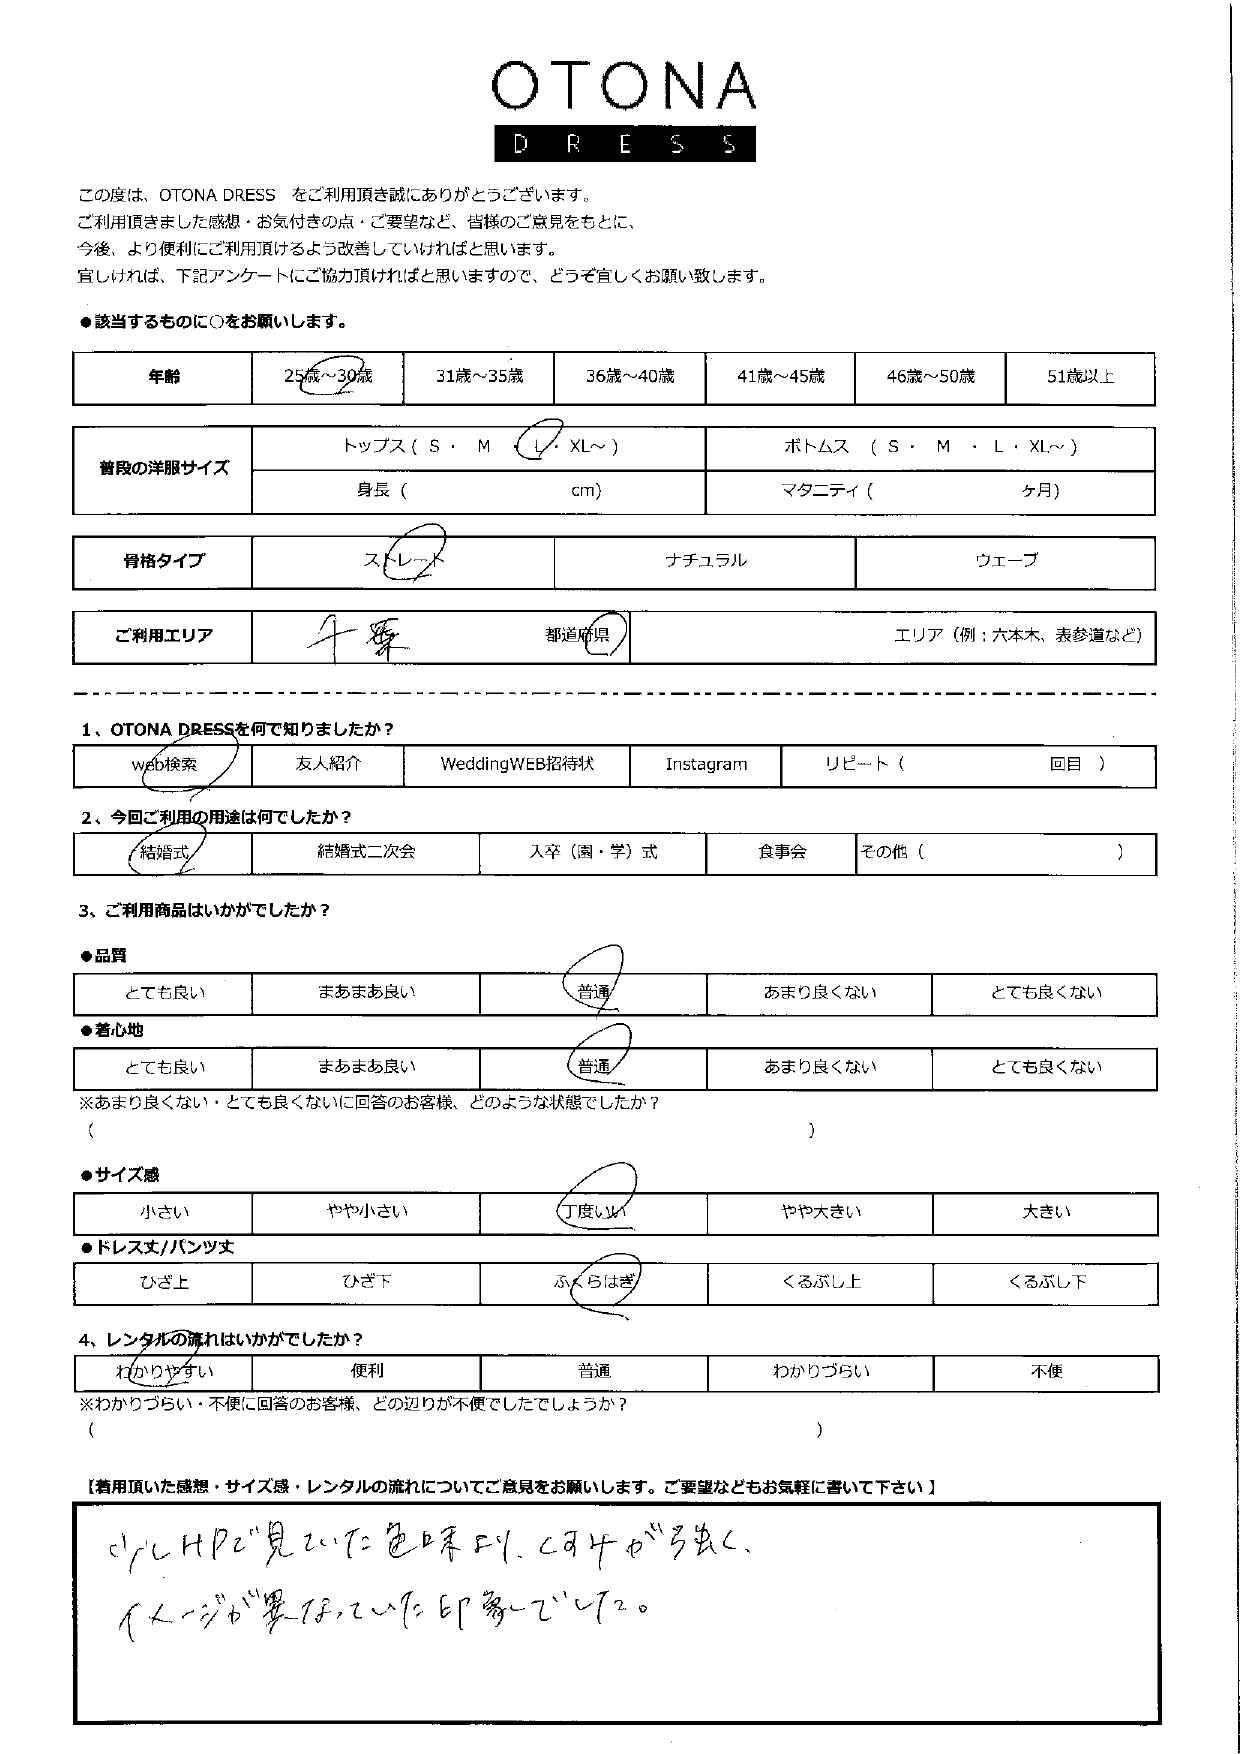 OTONA
DRESS
この度は、OTONA DRESS　をご利用頂き誠にありがとうございます。
ご利用頂きました感想・お気付きの点・ご要望など、皆様のご意見をもとに、
今後、より便利にご利用頂けるよう改善していければと思います。
宜しければ、下記アンケートにご協力頂ければと思いますので、どうぞ宜しくお願い致します。
●該当するものに○をお願いします。
年齢 25歳～30歳 31歳～35歳 36歳～40歳 41歳～45歳 46歳～50歳 51歳以上
普段の洋服サイズ トップス ( S ・ M ・ L ・ XL～ ) ボトムス ( S ・ M ・ L ・ XL～ )
身長 ( cm) マタニティ ( ヶ月)
骨格タイプ ストレート ナチュラル ウェーブ
ご利用エリア 千葉 都道府県 エリア（例；六本木、表参道など）
1、OTONA DRESSを何で知りましたか？
web検索 友人紹介 WeddingWEB招待状 Instagram リピート（ 回目 ）
2、今回ご利用の用途は何でしたか？
結婚式 結婚式二次会 入卒（園・学）式 食事会 その他（ ）
3、ご利用商品はいかがでしたか？
●品質
とても良い まあまあ良い 普通 あまり良くない とても良くない
●着心地
とても良い まあまあ良い 普通 あまり良くない とても良くない
※あまり良くない・とても良くないに回答のお客様、どのような状態でしたか？
（ ）
●サイズ感
小さい やや小さい 丁度いい やや大きい 大きい
●ドレス丈/パンツ丈
ひざ上 ひざ下 ふくらはぎ くるぶし上 くるぶし下
4、レンタルの流れはいかがでしたか？
わかりやすい 便利 普通 わかりづらい 不便
※わかりづらい・不便に回答のお客様、どの辺りが不便でしたでしょうか？
（ ）
【着用頂いた感想・サイズ感・レンタルの流れについてご意見をお願いします。ご要望などもお気軽に書いて下さい 】
少しHPで見ていた色味より、くすみが強く、
イメージが異なっていた印象でした。